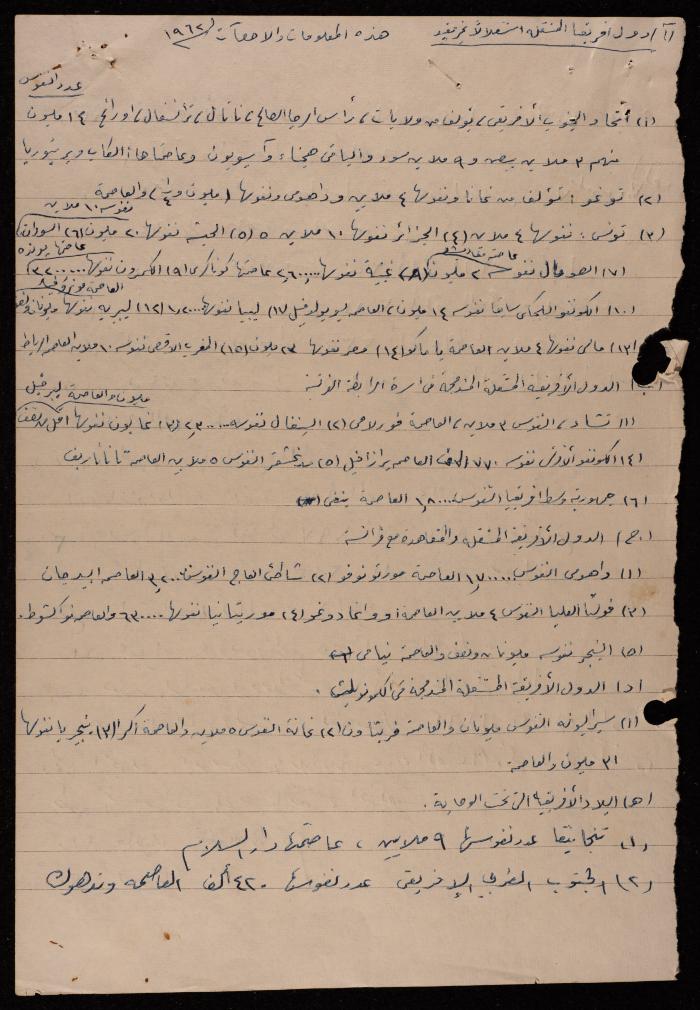 (أ) دول افريقيا المستقلة استقلالاً هذه المعلومات والاحصآت ١٩٦٢
عدد النفوس
(١) أتحاد الجنوب الأفريقي، يتولف من ولايات، رأس الرجا الصالح، ناتال، ترانسفال، اورانج ١٤ مليون
منهم ٣ ملاين بيض و ٩ ملاين سود والباقي هجناء وآسيويون وعاصمتاها: الكاب وبريتوريا
(٢) توغو: تؤلف من غانا ونفوسها ٤ ملاين وداهومي ونفوسها (مليون و والعاصمة
نفوسه ١٠ ملاين
(٣) تونس: نفوسها ٤ ملاين (٤) الجزائر نفوسها ١٠ ملاين (٥) الحبشة نفوسها ٢٠ مليون (٦) السودان
عاصمة مقاديشو
(٧) الصومال نفوسه ٢ مليون (٨) غينية نفوسها ٢,٦٠٠,٠٠٠ عاصمتها كوناكري (٩) الكمرون نفوسها ٣٢٠٠٠٠٠
(١٠) الكونغو البلجيكي سابقا نفوسه ١٤ مليون، العاصمه ليوبولدفيل (١١) ليبيا نفوسها (١٢) ليبريه نفوسها مليونان ونصف
(١٣) مالي نفوسها ٤ ملاين العاصمة باماكو (١٤) مصر نفوسها ٢٣ مليون (١٥) المغرب الاقصى نفوسه ١٠ ملاين العاصمه الرباط
الدول الأفريقية المستقلة المندمجة في اسرة الرابطة الفرنسية
مليون والعاصمة ليبرفيل
(١) تشاد، النفوس ٣ ملاين، العاصمة فورلامي (٢) السنغال نفوسه ٢٣٠٠٠٠٠ (٣) غابون نفوسها اقل من نصف
(٤) الكونغو الأفرنسي نفوسه ٧٧٠ الف العاصمه برازافيل (٥) مدغشقر النفوس ٥ ملاين العاصمه تاناناريف
(٦) جمهورية وسط افريقيا النفوس العاصمة بنغي
(جـ) الدول الأفريقية المستقله والمتعاهدة مع فرانسة
(١) داهومي النفوس العاصمة بورتونوفو (٢) شاطئ العاج النفوس العاصمه ابيدجان
(٣) فولتا العليا النفوس ٤ ملاين العاصمة اوواغادوغو (٤) موريتانيا نفوسها ٦٣٠٠٠٠ والعاصمه نواكشوط.
(٥) النيجر نفوسه مليونان ونصف والعاصمة نيامي
(د) الدول الأفريقية المستقلة المندمجة في الكومونولث.
(١) سيراليونه النفوس مليونان والعاصمة فريتاون (٢) غانة النفوس ٥ ملاين والعاصمة أكرا (٣) نيجريا نفوسها
٣١ مليون والعاصمة
(هـ) البلاد الأفريقية التي تحت الوصاية.
(١) تنجانيقا عدد نفوسها ٩ ملايين، عاصمتها دار السلام
(٢) الجنوب المغربي الإفريقي عدد نفوسها ٤٢٠ ألف العاصمه وندهوك